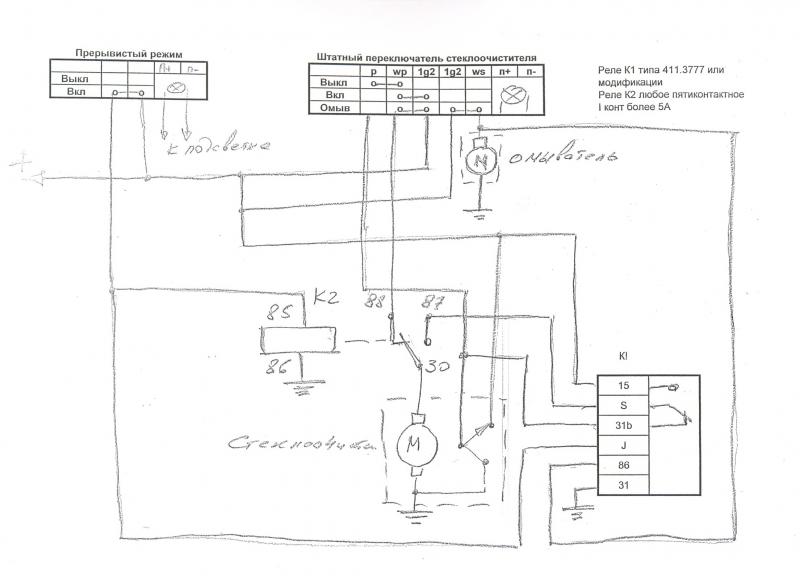 Прерывистый режим
п+ п-
Выкл
Вкл
Штатный переключатель стеклоочистителя
p wp 1g2 1g2 ws п+ п-
Выкл
Вкл
Омыв
Реле К1 типа 411.3777 или
модификации
Реле К2 любое пятиконтактное
I конт более 5А
к подсветке
+
омыватель
М
К2
88
87
85
86
30
К!
15
S
31b
J
86
31
М